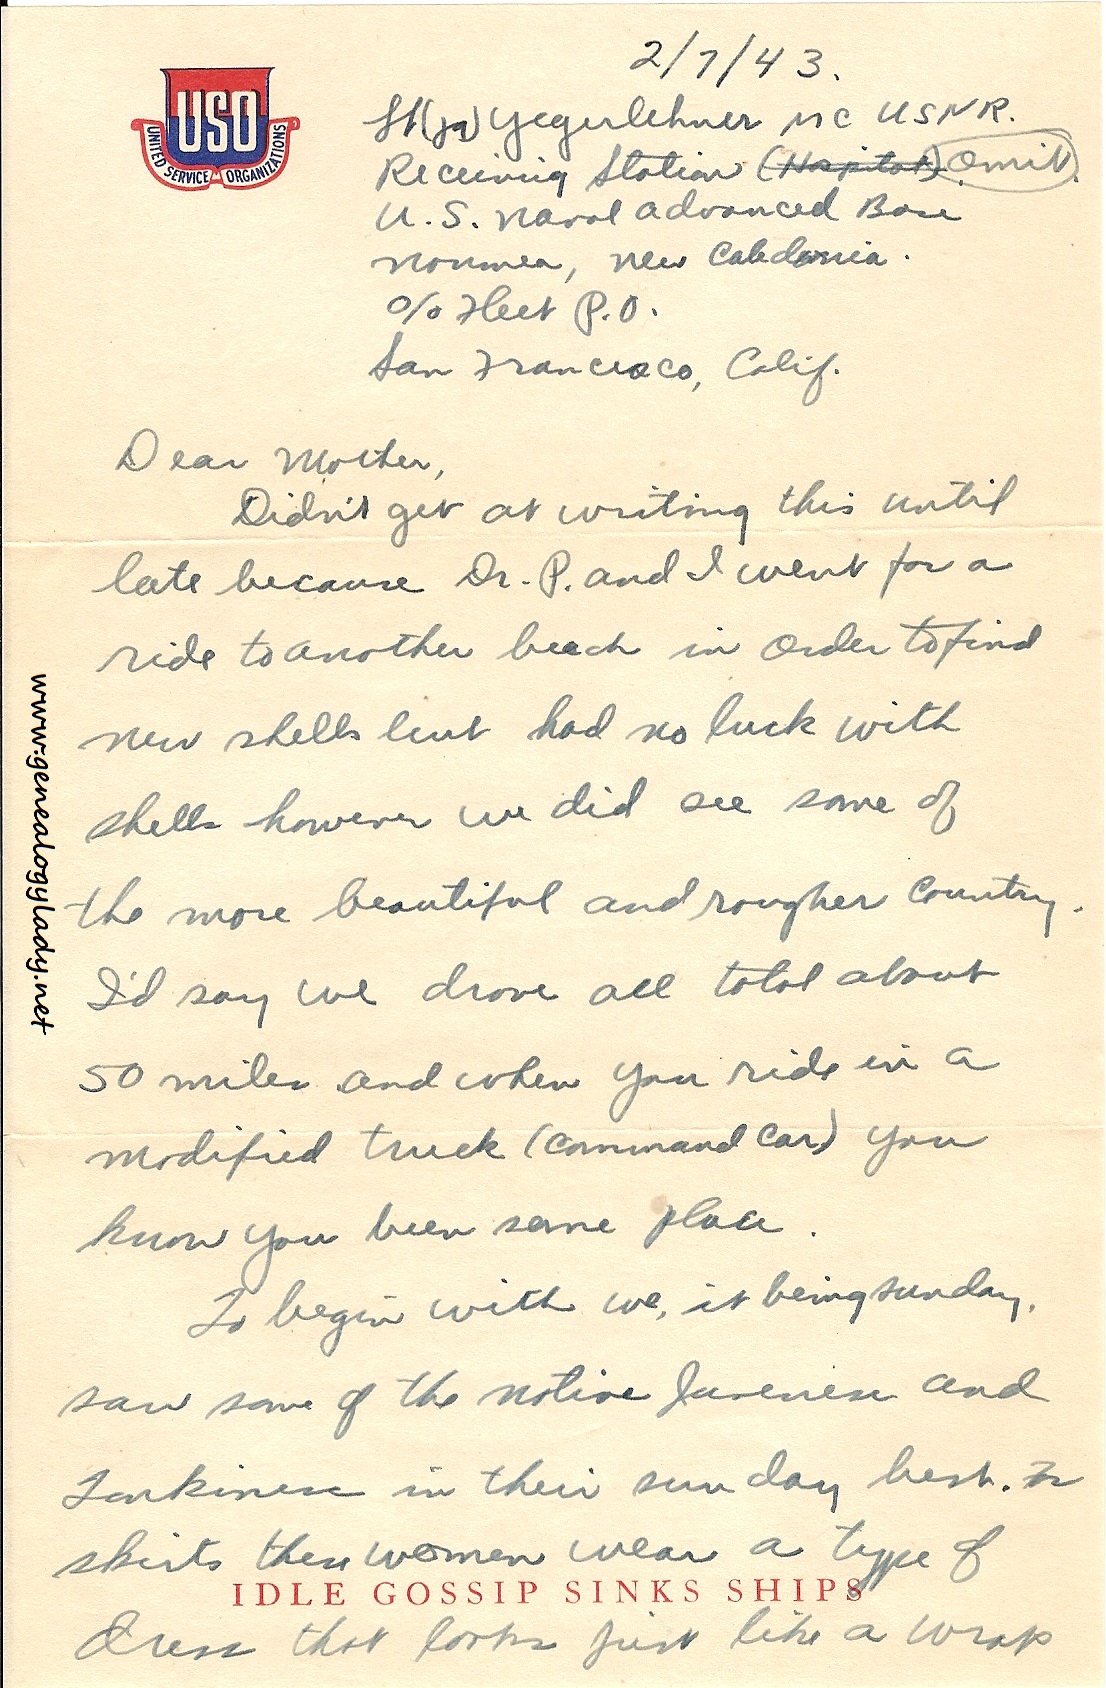 USO
UNITED SERVICE ORGANIZATIONS
2/7/43.
Lt(jg) Yegerlehner MC USNR.
Receiving Station (Hospital) omit.
U.S. Naval Advanced Base
Noumea, New Caledonia.
c/o Fleet P.O.
San Francisco, Calif.
Dear Mother,
Didn't get at writing this until
late because Dr. P. and I went for a
ride to another beach in order to find
new shells but had no luck with
shells however we did see some of
the more beautiful and rougher country.
I'd say we drove all total about
50 miles and when you ride in a
modified truck (command car) you
know you been some place.
To begin with we, it being sunday,
saw some of the native Javenese and
Tonkinese in their sunday best. In
skirts these women wear a type of
IDLE GOSSIP SINKS SHIPS
dress that looks just like a wrap
www.genealogylady.net